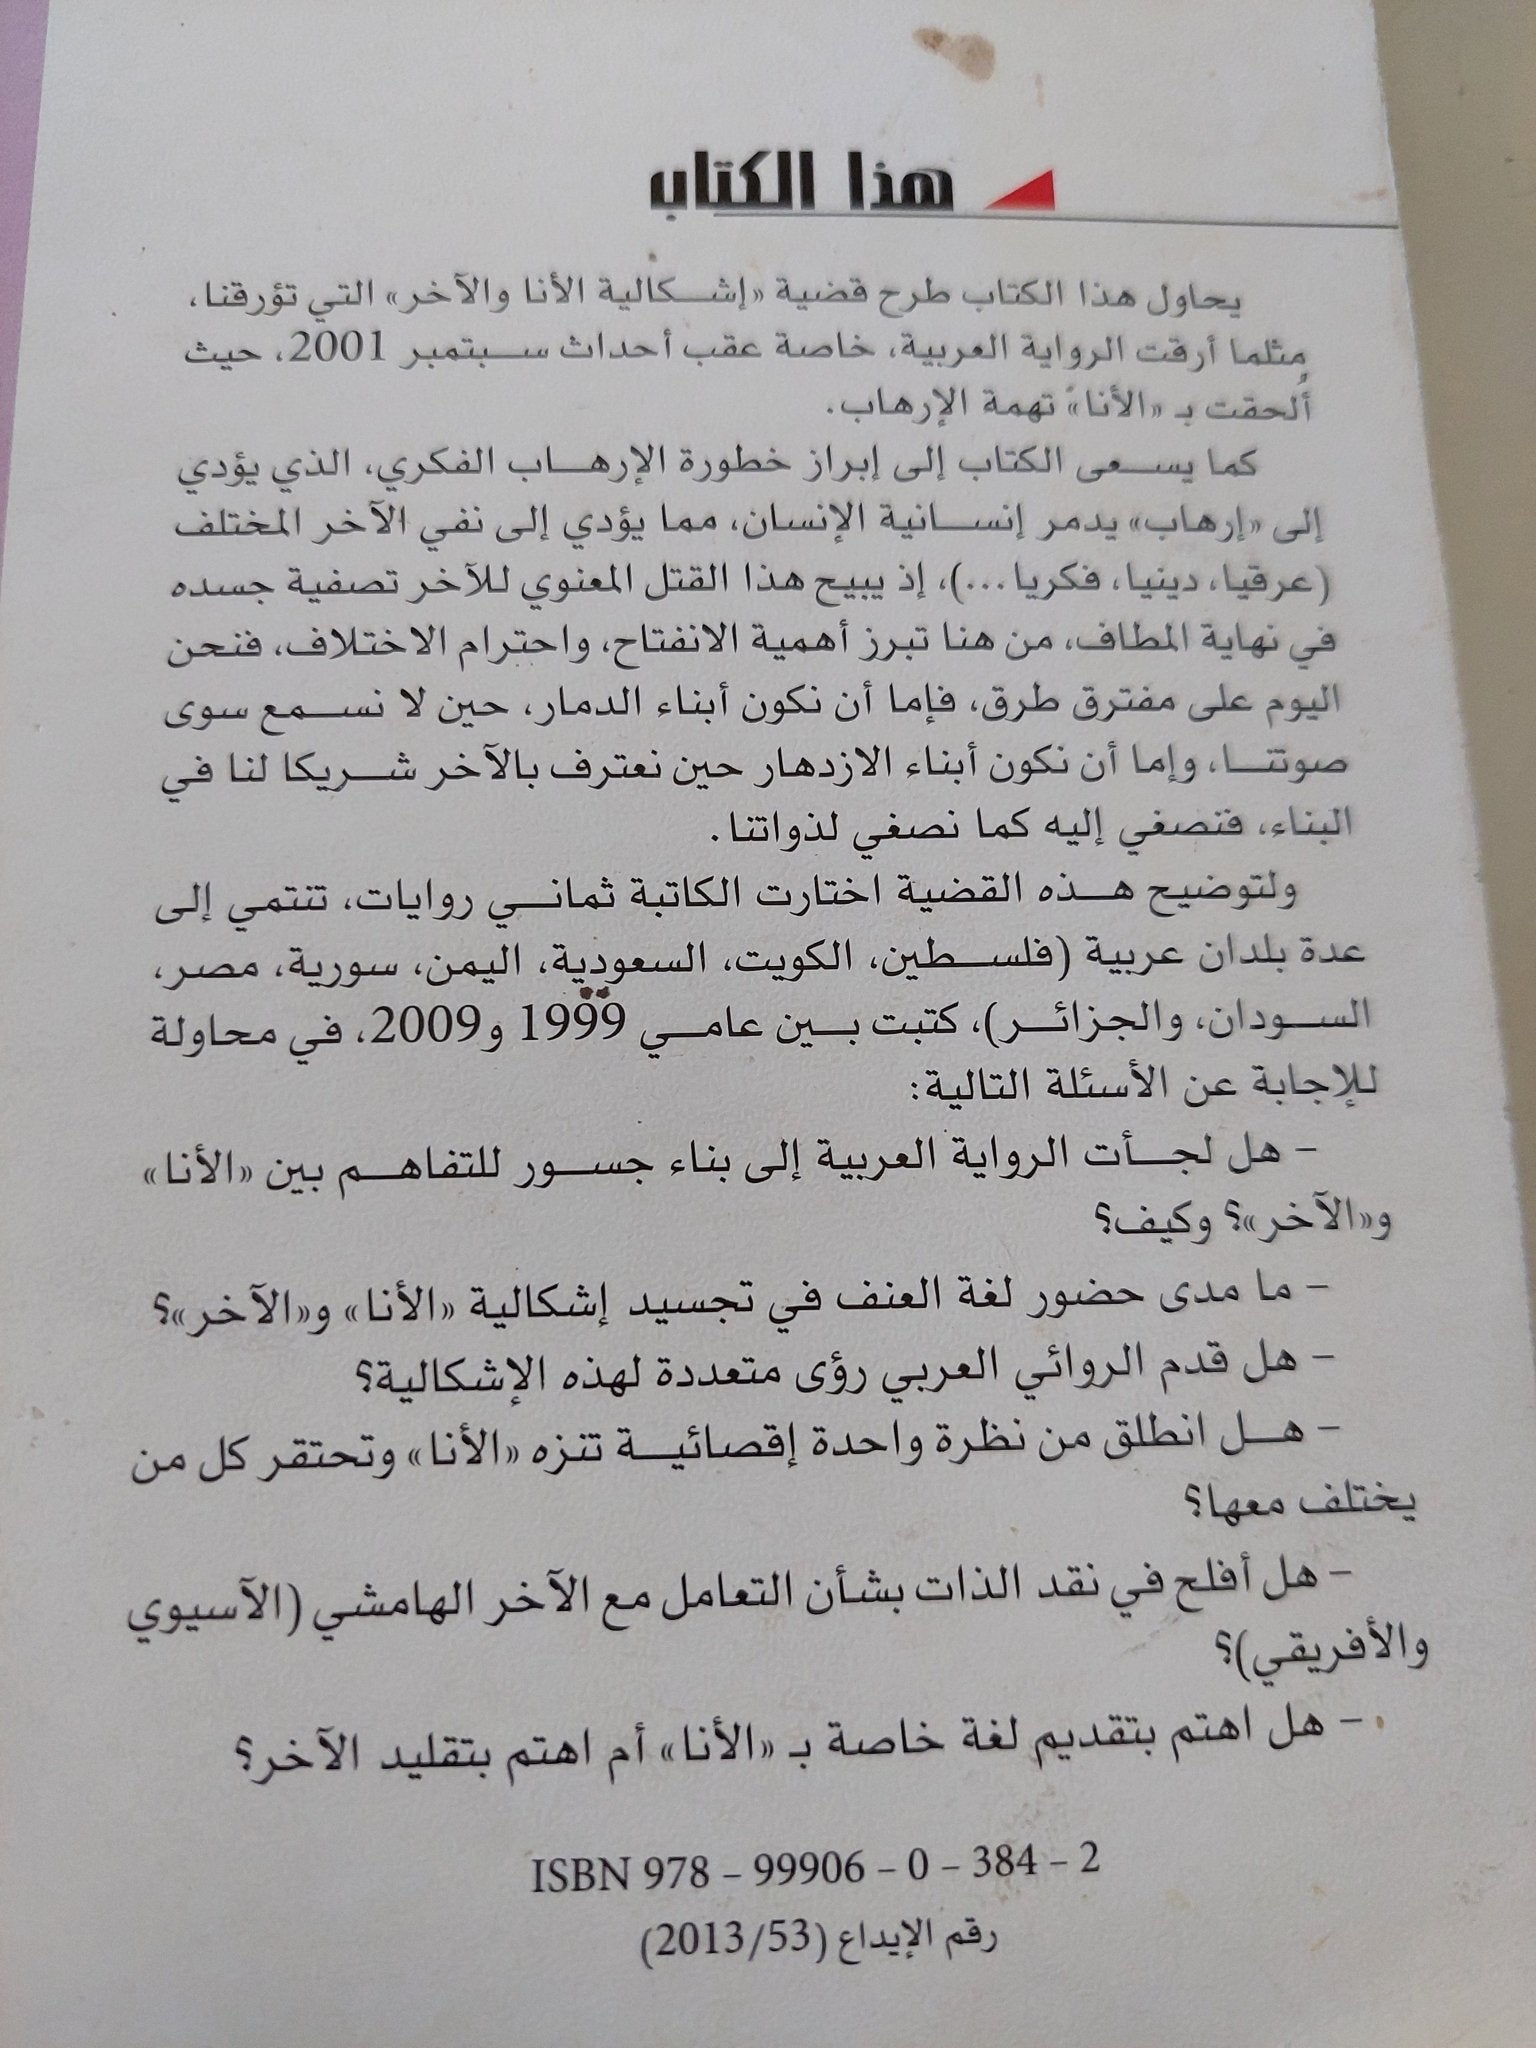 هذا الكتاب
يحاول هذا الكتاب طرح قضية «إشكالية الأنا والآخر» التي تؤرقنا،
مثلما أرقت الرواية العربية، خاصة عقب أحداث سبتمبر 2001، حيث
أُلحقت بـ «الأنا» تهمة الإرهاب.
كما يسعى الكتاب إلى إبراز خطورة الإرهاب الفكري، الذي يؤدي
إلى «إرهاب» يدمر إنسانية الإنسان، مما يؤدي إلى نفي الآخر المختلف
(عرقيا، دينيا، فكريا...)، إذ يبيح هذا القتل المعنوي للآخر تصفية جسده
في نهاية المطاف، من هنا تبرز أهمية الانفتاح، واحترام الاختلاف، فنحن
اليوم على مفترق طرق، فإما أن نكون أبناء الدمار، حين لا نسمع سوى
صوتنا، وإما أن نكون أبناء الازدهار حين نعترف بالآخر شريكا لنا في
البناء، فنصغي إليه كما نصغي لذواتنا.
ولتوضيح هذه القضية اختارت الكاتبة ثماني روايات، تنتمي إلى
عدة بلدان عربية (فلسطين، الكويت، السعودية، اليمن، سورية، مصر،
السودان، والجزائر)، كتبت بين عامي 1999 و2009، في محاولة
للإجابة عن الأسئلة التالية:
– هل لجأت الرواية العربية إلى بناء جسور للتفاهم بين «الأنا»
و«الآخر»؟ وكيف؟
– ما مدى حضور لغة العنف في تجسيد إشكالية «الأنا» و«الآخر»؟
– هل قدم الروائي العربي رؤى متعددة لهذه الإشكالية؟
– هل انطلق من نظرة واحدة إقصائية تنزه «الأنا» وتحتقر كل من
يختلف معها؟
– هل أفلح في نقد الذات بشأن التعامل مع الآخر الهامشي (الآسيوي
والأفريقي)؟
– هل اهتم بتقديم لغة خاصة بـ «الأنا» أم اهتم بتقليد الآخر؟
ISBN 978 – 99906 – 0 – 384 – 2
رقم الإيداع (2013/53)